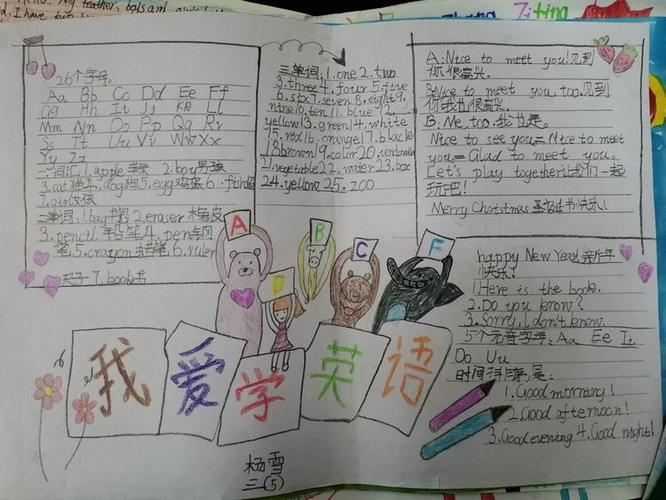 26个字母。
Aa Bb Cc Dd Ee Ff
Gg Hh Ii Jj Kk Ll
Mm Nn Oo Pp Qq Rr
Ss Tt Uu Vv Ww Xx
Yy Zz
二词汇1.apple苹果 2.boy男孩
3.cat猫 4.dog狗 5.egg鸡蛋 6.
7.girl女孩
三单词:1.bag书包 2.eraser橡皮
3.pencil铅笔 4.pen钢
笔 5.crayon蜡笔 6.ruler
尺子 7.book书
三单词,1.one 2.two
3.three 4.four 5.five
6.six 7.seven 8.eight 9.
nine 10.ten 11.blue 12.
yellow 13.green 14.white
15.red 16.orange 17.black
18.brown 19.color 20.umbrella
21.vegetable 22.water 23.box
24.yellow 25.zoo
A:Nice to meet you!见到
你很高兴。
B:Nice to meet you, too.见到
你我也很高兴。
B. Me, too.我也是。
Nice to see you=Nice to meet
you=Glad to meet you.
Let's play together!让我们一起
玩吧!
Merry Christmas圣诞节快乐!
happy New Year!新年
快乐!
1.Here is the book.
2.Do you know?
3.Sorry, I don't know.
5个元音字母:Aa Ee Ii
Oo Uu
1.Good morning!
2.Good afternoon!
3.Good evening 4.Good night!
A
B
C
D
F
我爱学英语
杨雪
三⑤